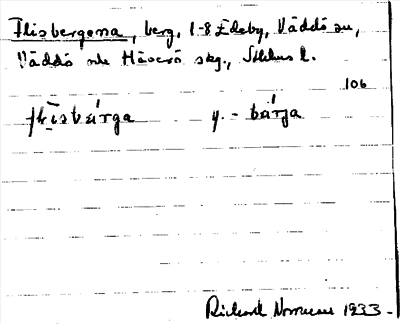 Flisbergena, berg, 1-8 Edeby, Väddö sn,
Väddö och Häverö skg., Sthlms l.
106
flisbærga y. - bærja
Richard Norman 1933.